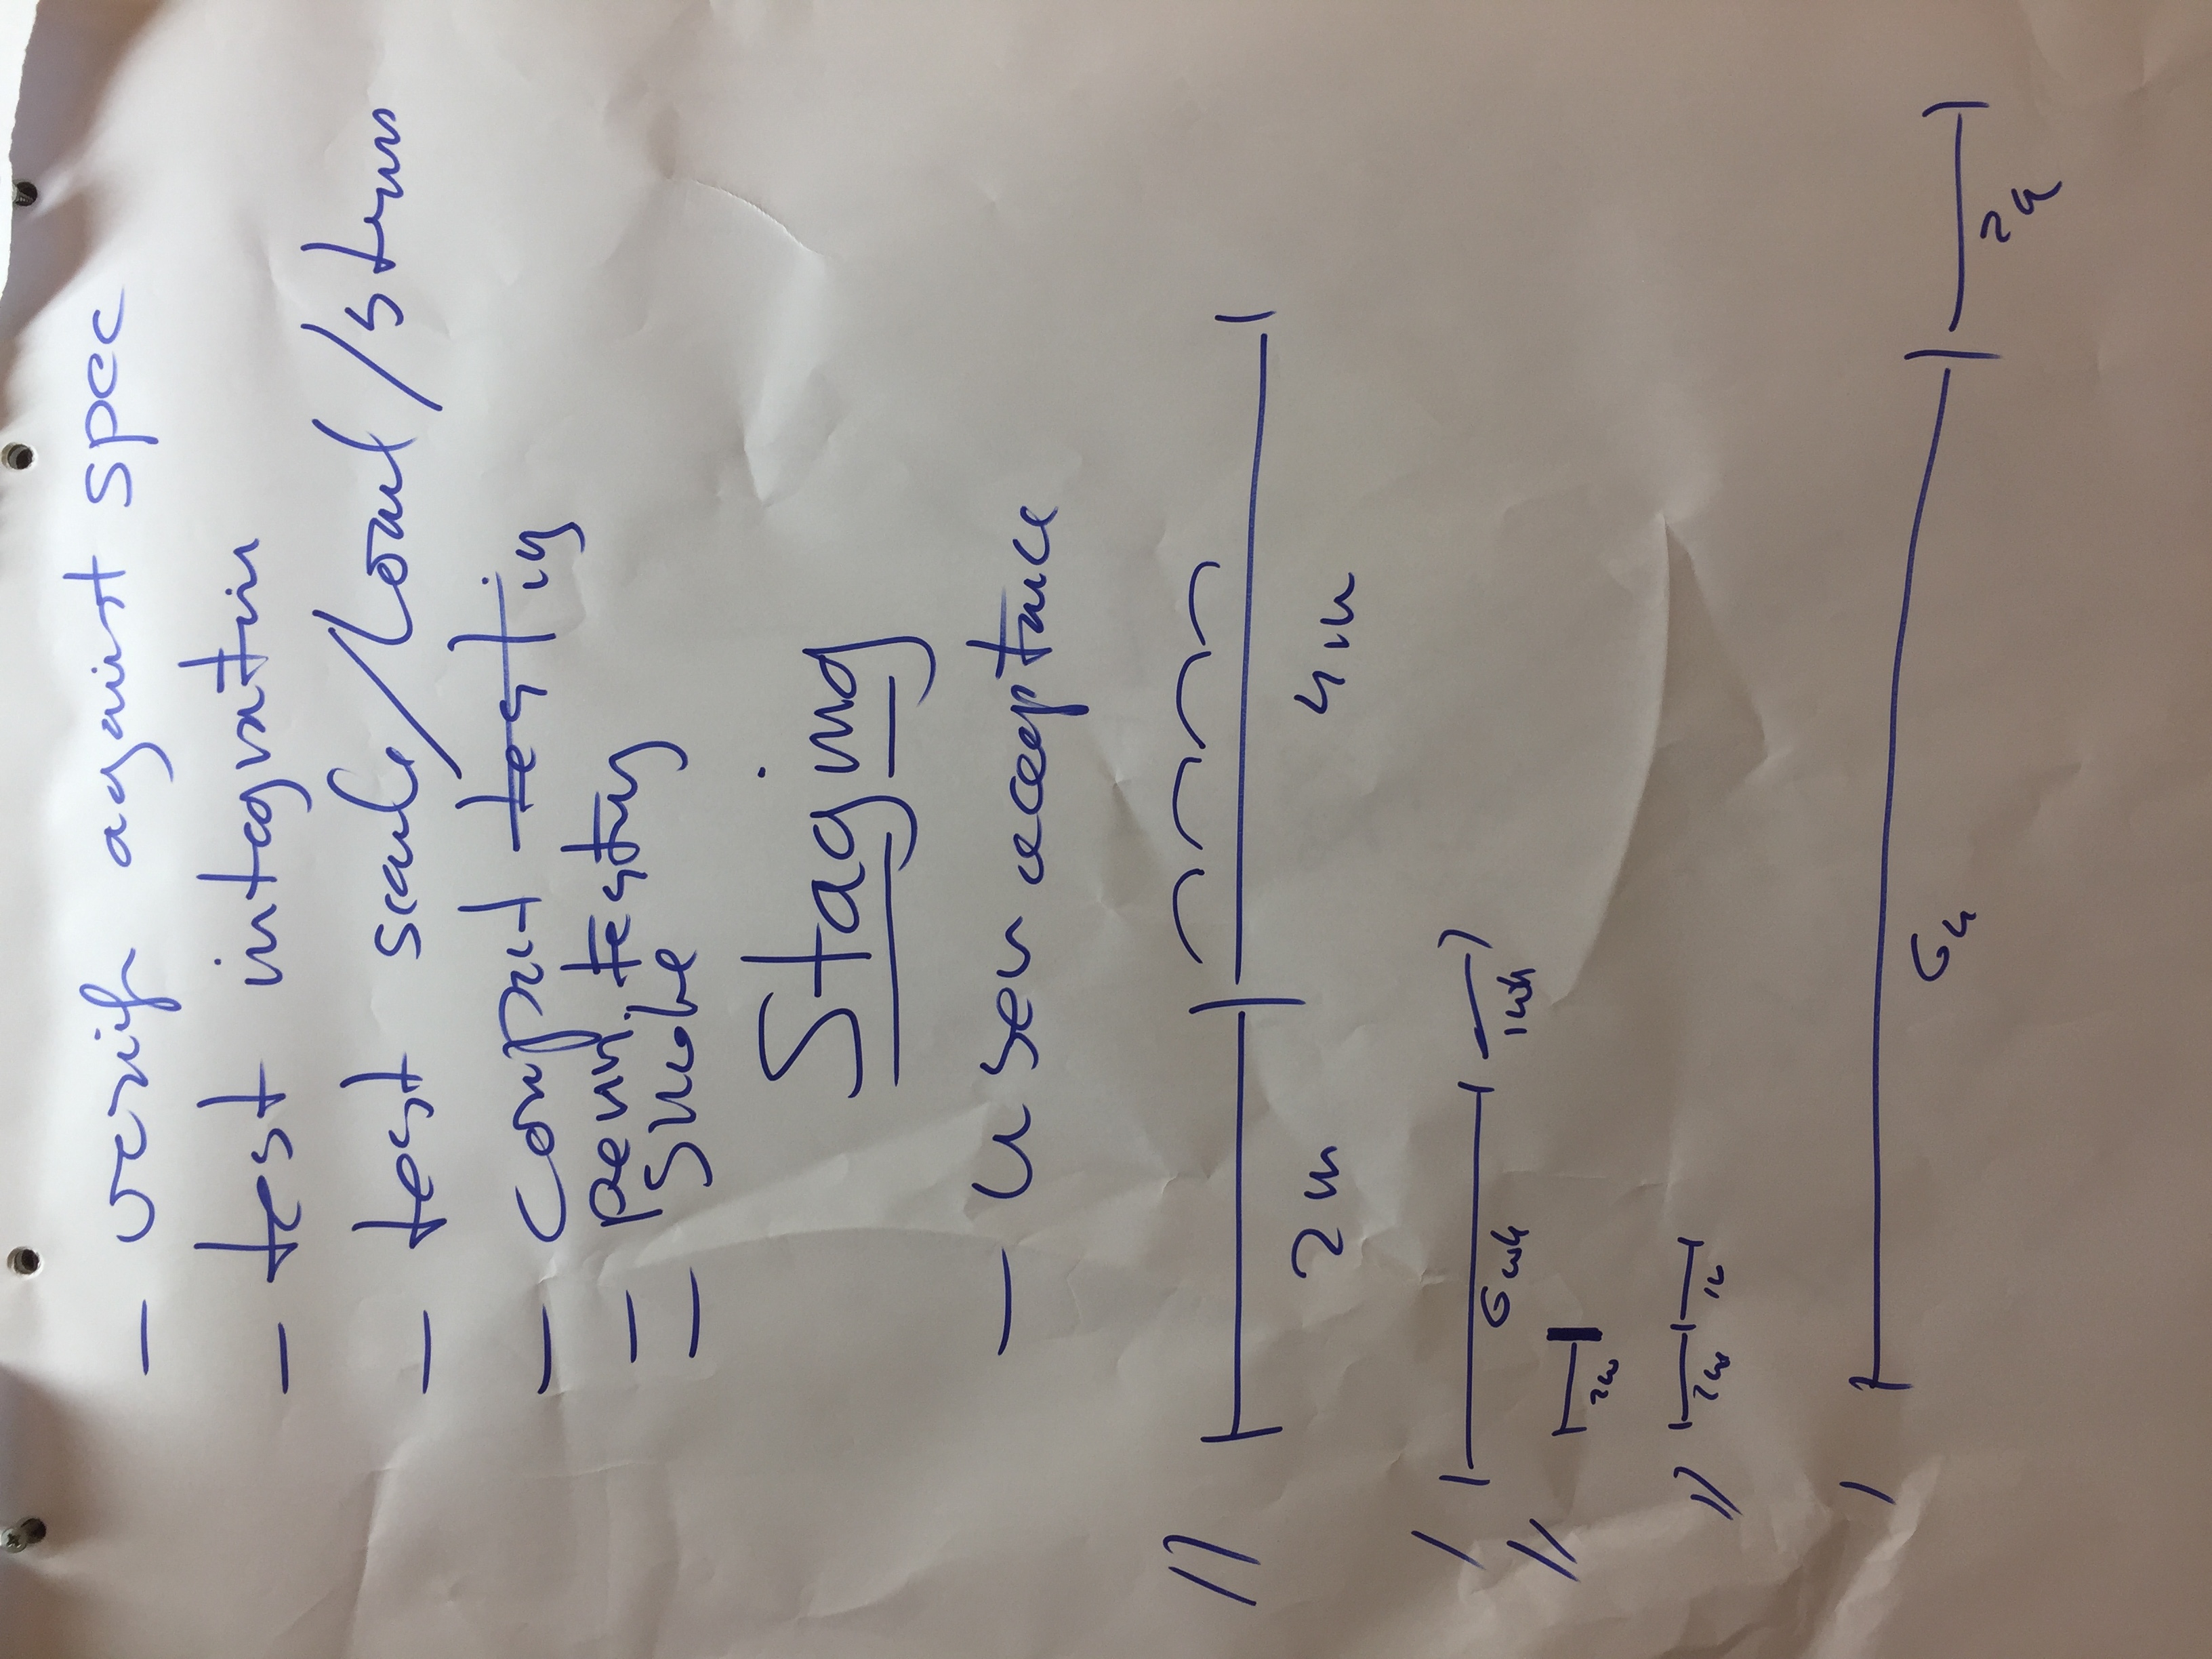 - verify against spec
- test integration
- test scale/load/stress
- compat testing
- penn. testing
- smoke
Staging
- user acceptance
2m 4m
6wk 1wk
2w
2w 1w